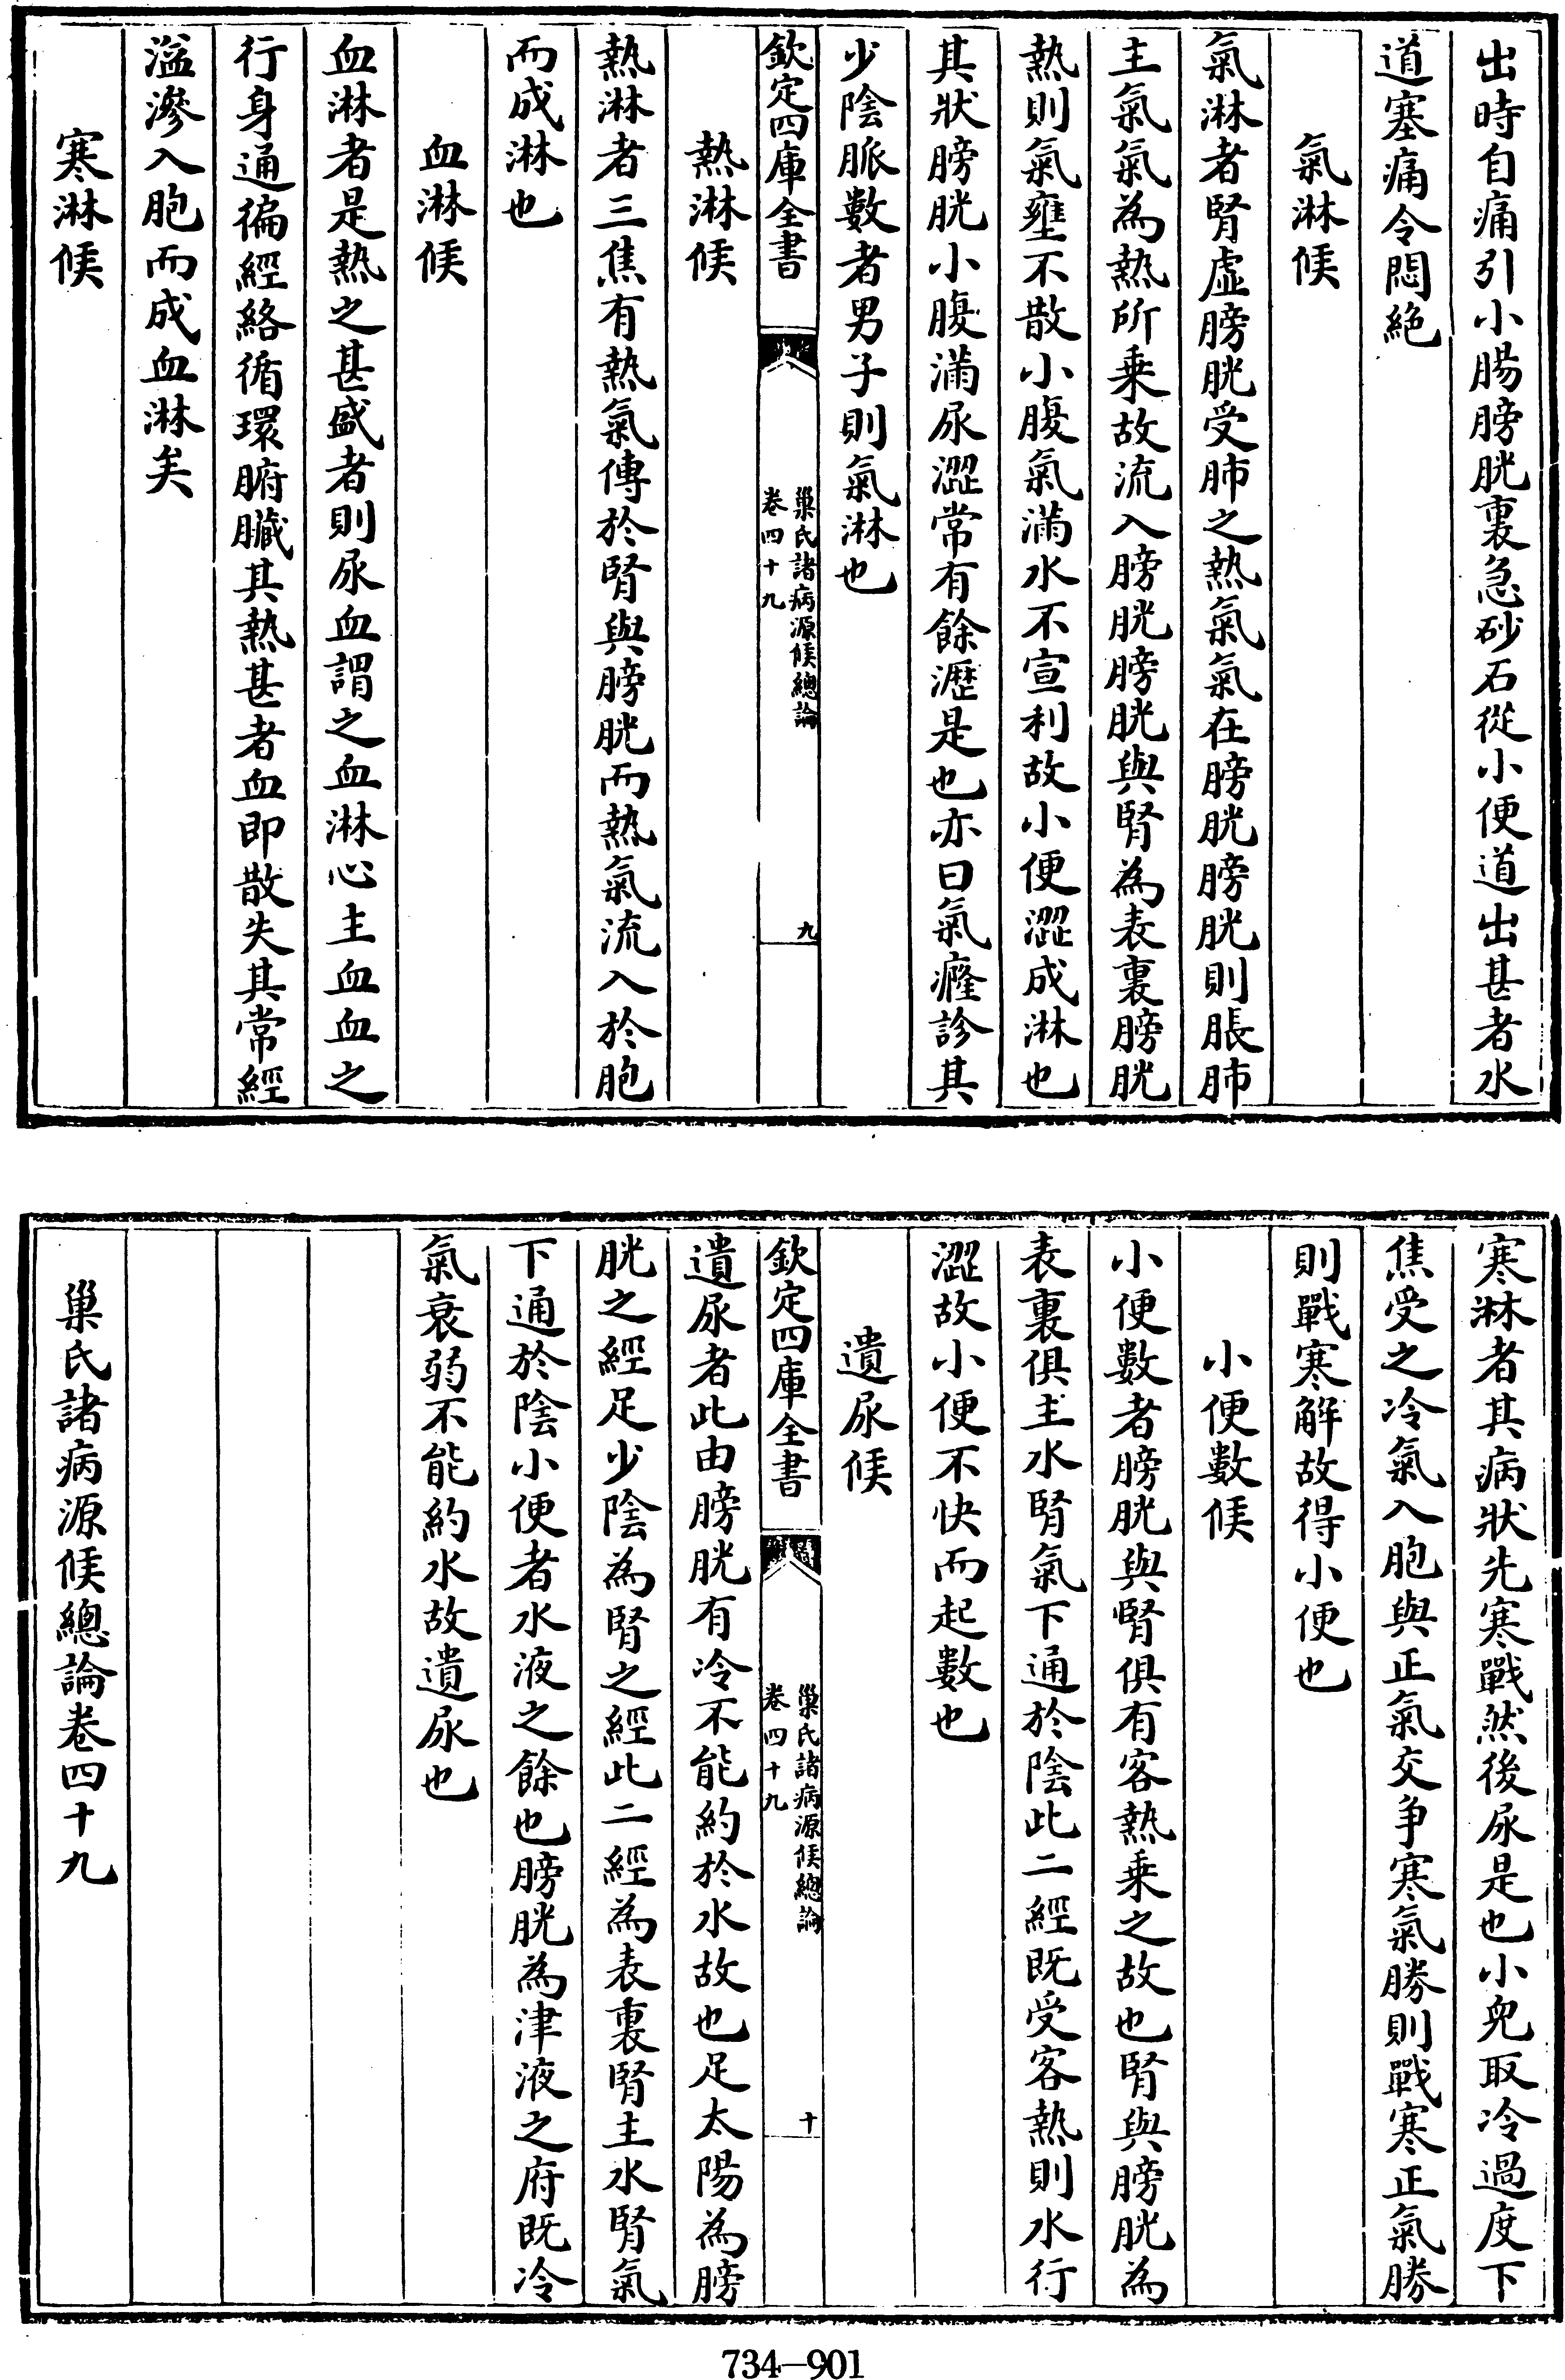 出時自痛引小腸膀胱裏急砂石從小便道出甚者水
道塞痛令悶絶
氣淋候
氣淋者腎虛膀胱受肺之熱氣氣在膀胱膀胱則脹肺
主氣氣為熱所乗故流入膀胱膀胱與腎為表裏膀胱
熱則氣壅不散小腹氣滿水不宣利故小便澀成淋也
其狀膀胱小腹滿尿澀常有餘瀝是也亦曰氣癃診其
少陰脈數者男子則氣淋也
欽定四庫全書
巢氏諸病源候總論
卷四十九
九
熱淋候
熱淋者三焦有熱氣傳於腎與膀胱而熱氣流入於胞
而成淋也
血淋候
血淋者是熱之甚盛者則尿血謂之血淋心主血血之
行身通徧經絡循環腑臟其熱甚者血即散失其常經
溢滲入胞而成血淋矣
寒淋候
寒淋者其病狀先寒戰然後尿是也小兒取冷過度下
焦受之冷氣入胞與正氣交争寒氣勝則戰寒正氣勝
則戰寒解故得小便也
小便數候
小便數者膀胱與腎俱有客熱乗之故也腎與膀胱為
表裏俱主水腎氣下通於陰此二經既受客熱則水行
澀故小便不快而起數也
遺尿候
欽定四庫全書
巢氏諸病源候總論
卷四十九
十
遺尿者此由膀胱有冷不能約於水故也足太陽為膀
胱之經足少陰為腎之經此二經為表裏腎主水腎氣
下通於陰小便者水液之餘也膀胱為津液之府既冷
氣衰弱不能約水故遺尿也
巢氏諸病源候總論卷四十九
734-901